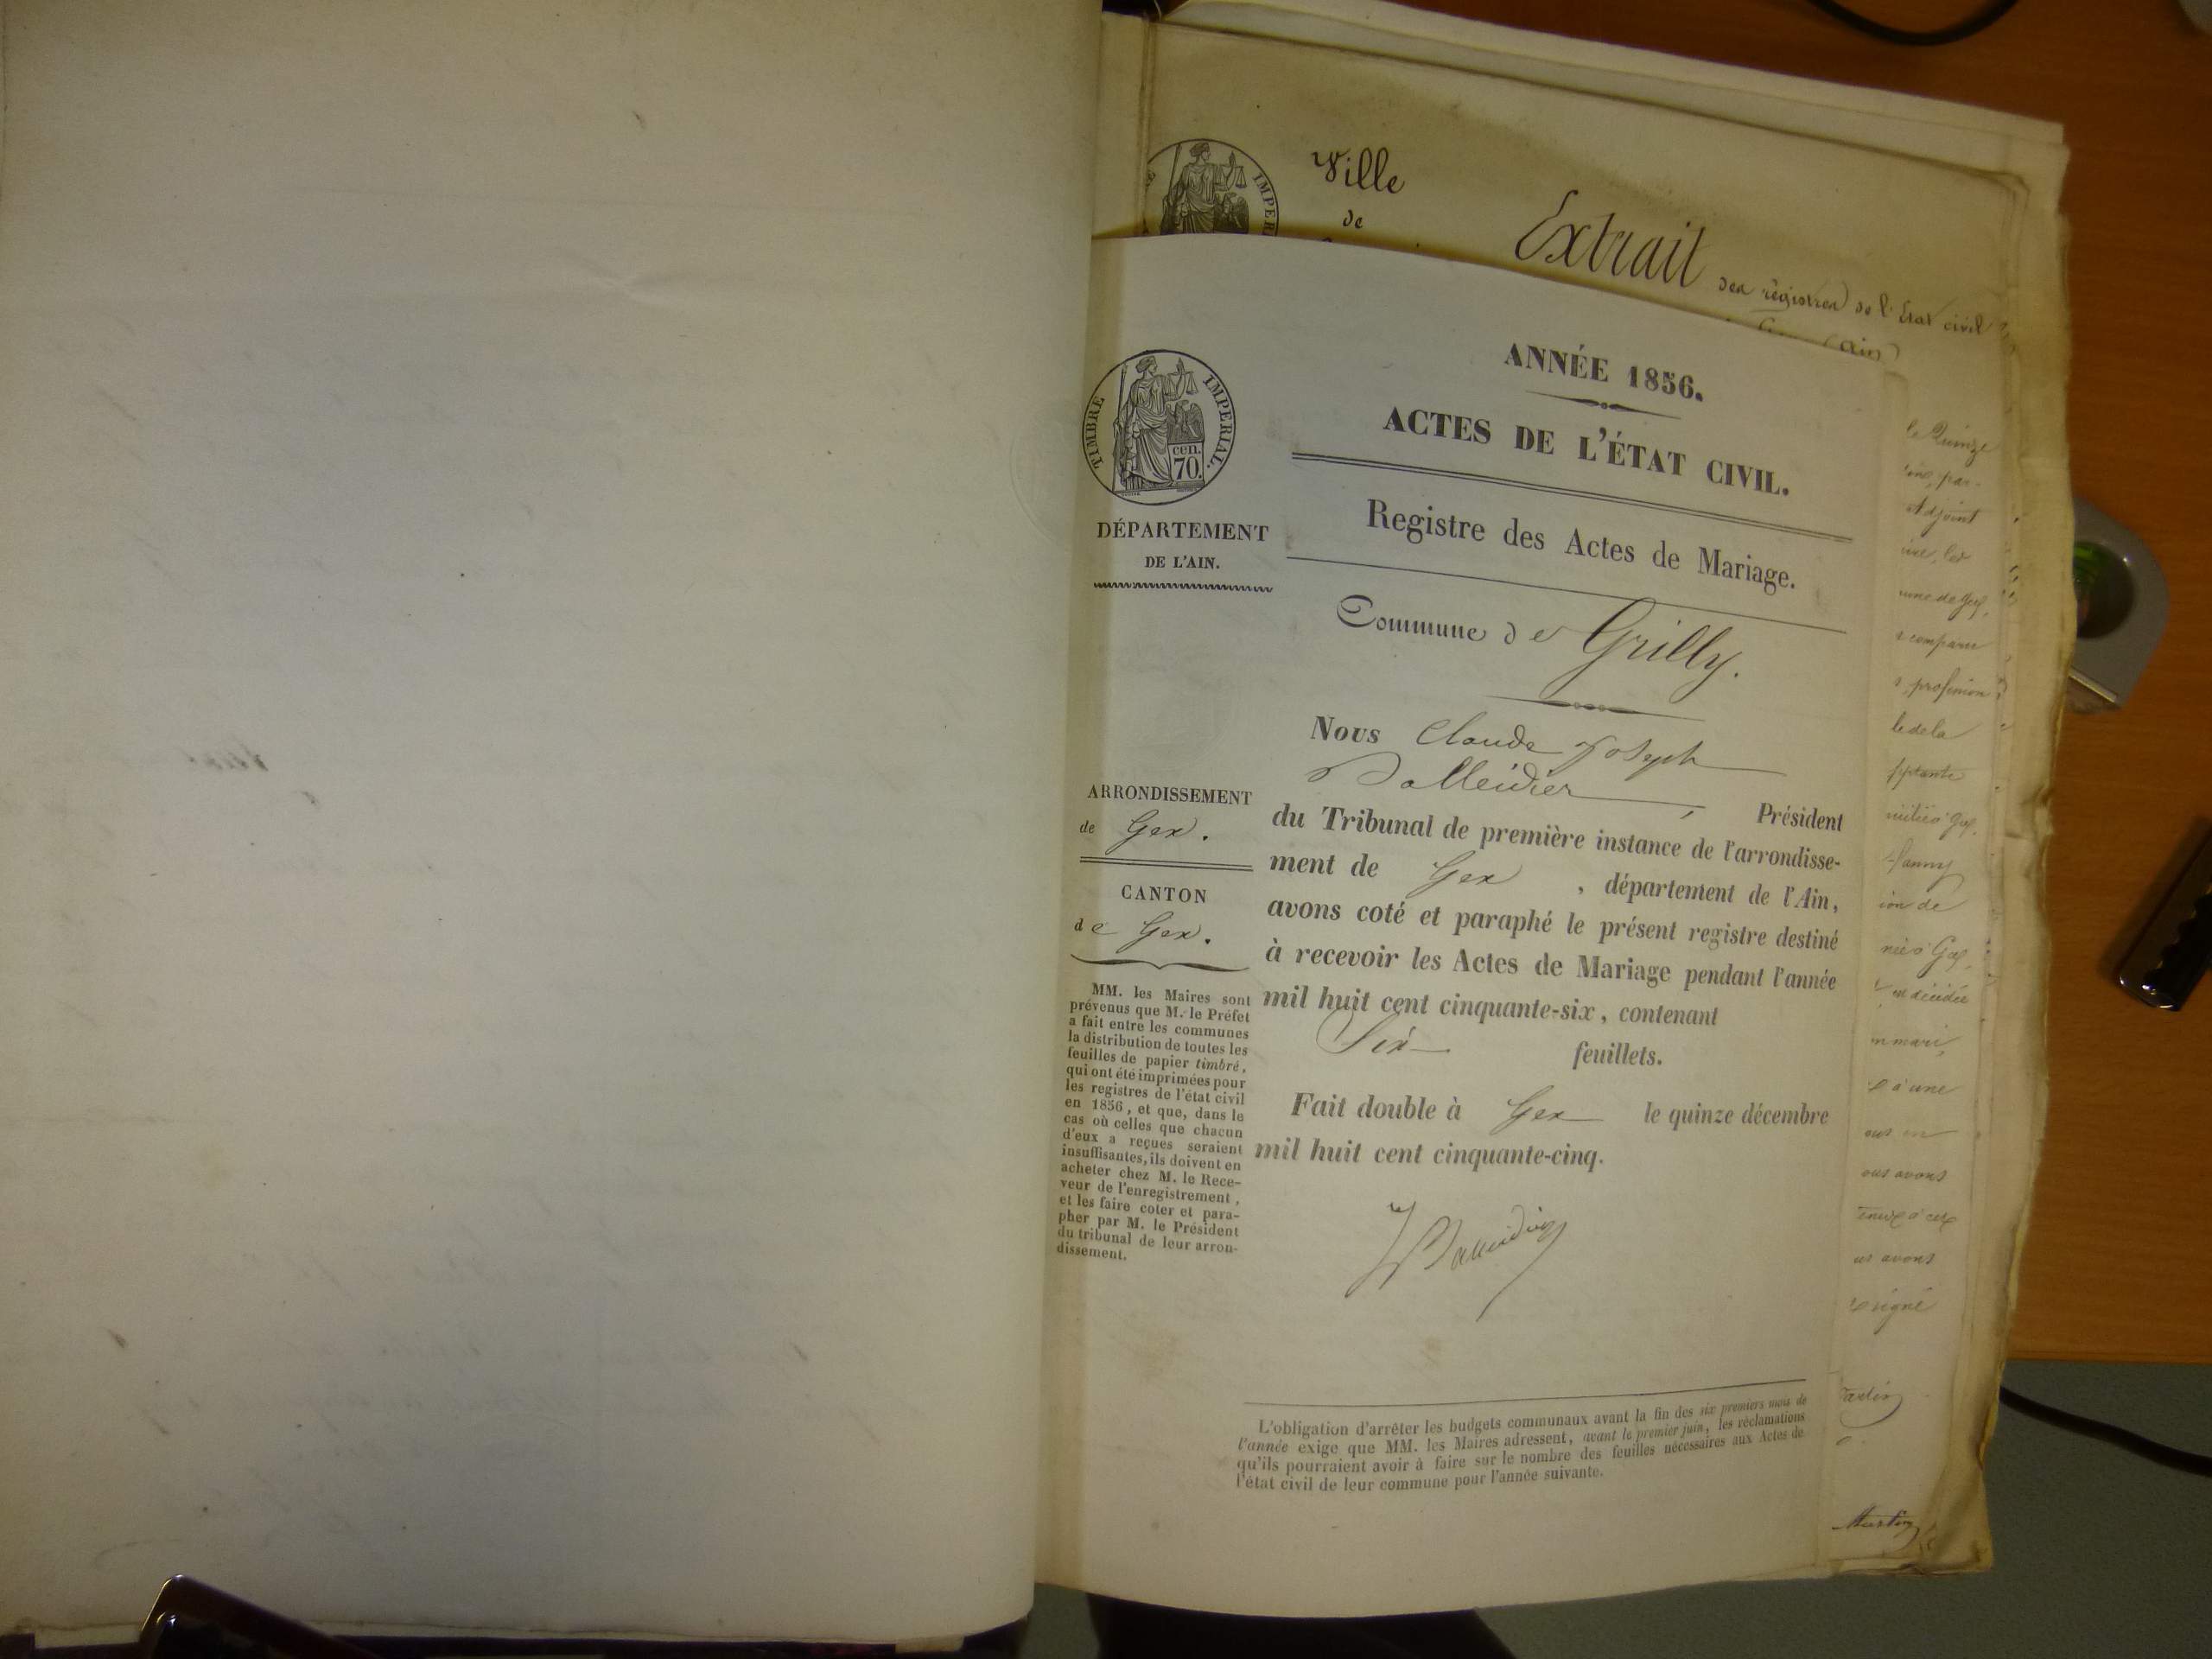 Ville
de
Extrait des registres de l'Etat civil
(Ain)
ANNÉE 1856.
ACTES DE L'ÉTAT CIVIL.
Registre des Actes de Mariage.
Commune de Grilly.
TIMBRE IMPERIAL.
cen.
70.
DÉPARTEMENT
DE L'AIN.
ARRONDISSEMENT
de Gex.
CANTON
de Gex.
MM. les Maires sont
prévenus que M. le Préfet
a fait entre les communes
la distribution de toutes les
feuilles de papier timbré,
qui ont été imprimées pour
les registres de l'état civil
en 1856, et que, dans le
cas où celles que chacun
d'eux a reçues seraient
insuffisantes, ils doivent en
acheter chez M. le Rece-
veur de l'enregistrement,
et les faire coter et para-
pher par M. le Président
du tribunal de leur arron-
dissement.
Nous Claude Joseph
, Président
du Tribunal de première instance de l'arrondisse-
ment de Gex , département de l'Ain,
avons coté et paraphé le présent registre destiné
à recevoir les Actes de Mariage pendant l'année
mil huit cent cinquante-six, contenant
Six feuillets.
Fait double à Gex le quinze décembre
mil huit cent cinquante-cinq.
L'obligation d'arrêter les budgets communaux avant la fin des six premiers mois de
l'année exige que MM. les Maires adressent, avant le premier juin, les réclamations
qu'ils pourraient avoir à faire sur le nombre des feuilles nécessaires aux Actes de
l'état civil de leur commune pour l'année suivante.
le Quinze
Adjoint
de Gex,
profession
de la
Fanny
de
Gex,
mari,
à une
ous avons
avons
signé